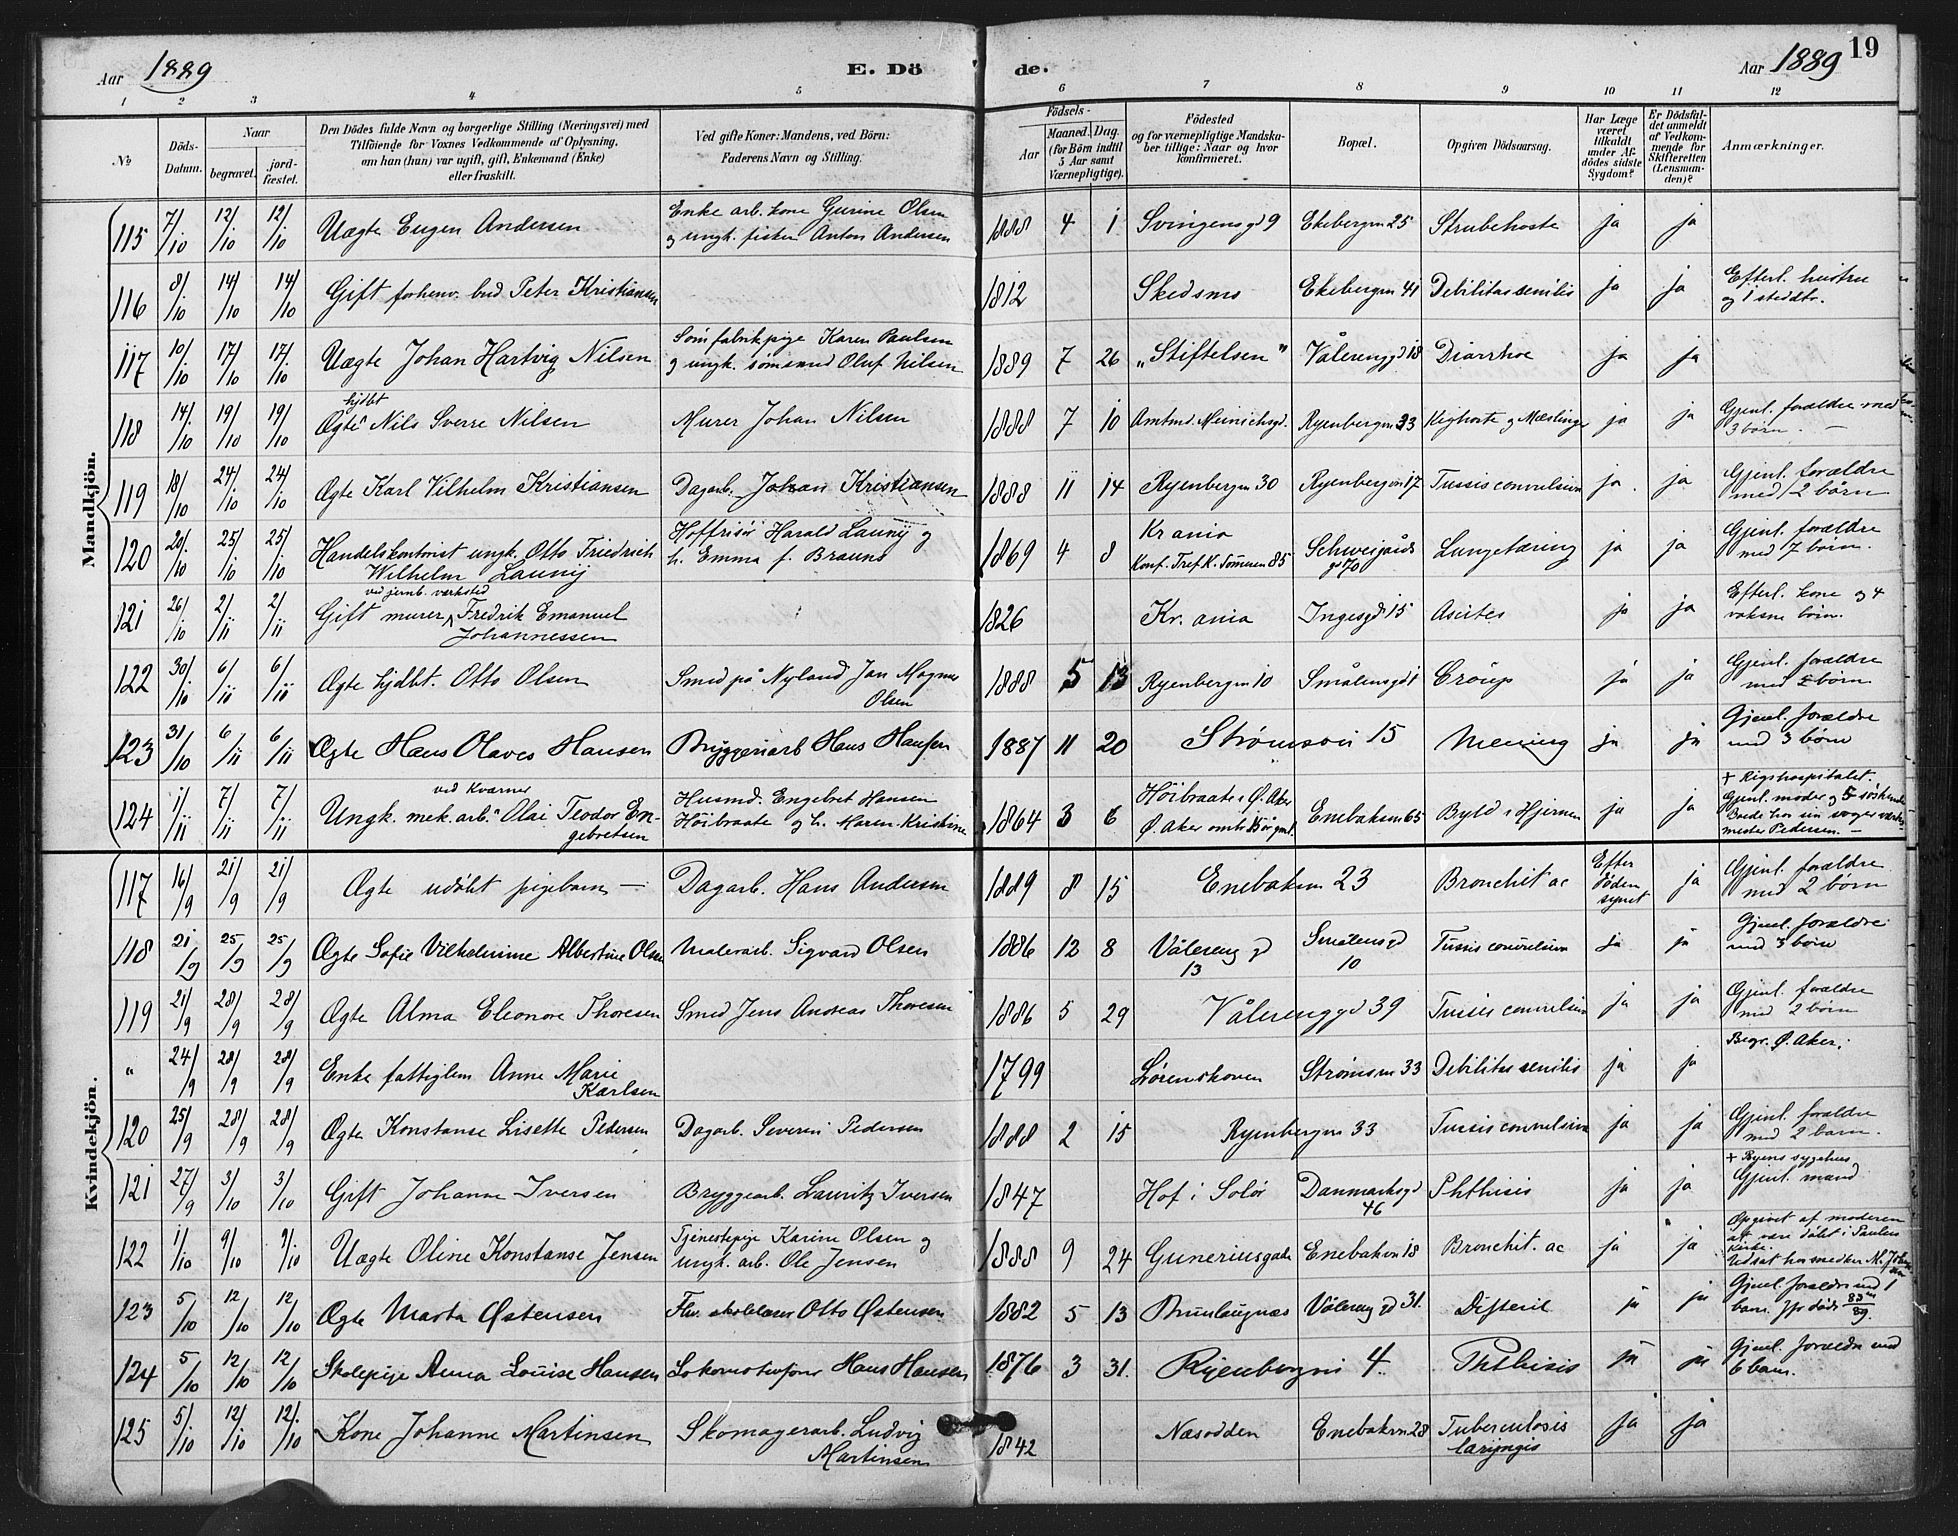 Aar 1889 E. Dö de. Aar 1889 19
1 2 3 4 5 6 7 8 9 10 11 12
No Döds-Datum. Naar begravet. jord-fæstet. Den Dödes fulde Navn og borgerlige Stilling (Næringsvei) med Tilföiende for Voxnes Vedkommende af Oplysning, om han (hun) var ugift, gift, Enkemand (Enke) eller fraskilt. Ved gifte Koner: Mandens, ved Börn: Faderens Navn og Stilling. Födsels- Aar Maaned. Dag. (for Börn indtil 5 Aar samt Værnepligtige). Födested og for værnepligtige Mandska-ber tillige: Naar og hvor konfirmeret. Bopæl. Opgiven Dödsaarsag. Har Læge været tilkaldt under Af-dödes sidste Sygdom? Er Dödsfal-det anmeldt af Vedkom-mende for Skifteretten (Lensman-den)? Anmærkninger.
Mandkjön.
115 7/10 12/10 12/10 Uægte Eugen Andersen Enke arb. kone Gurine Olsen og ungk. fisker Anton Andersen 1888 4 1 Svingensgd 9 Ekebergvn 25 Strubehoste ja ja
116 8/10 14/10 14/10 Gift forhenv. bud Peter Kristiansen 1812 Skedsmo Ekebergvn 41 Debilitas senilis ja ja Efterl. hustru og 1 steddtr.
117 10/10 17/10 17/10 Uægte Johan Hartvig Nilsen Sömfabrikpige Karen Paulsen og ungk. sömsmed Oluf Nilsen 1889 7 26 "Stiftelsen" Vålerenggd 18 Diarrhoe ja ja
118 14/10 19/10 19/10 Ægte hjdbt Nils Sverre Nilsen Murer Johan Nilsen 1888 7 10 Amtmd. Meinichsgd. Ryenbergvn 33 Kighoste og Mæslinger ja ja Gjenl. forældre med 3 börn. —
119 18/10 24/10 24/10 Ægte Karl Vilhelm Kristiansen Dagarb. Johan Kristiansen 1888 11 14 Ryenbergvn 30 Ryenbergvn 17 Tussis convulsiva ja. ja. Gjenl. forældre med 2 börn
120 20/10 25/10 25/10 Handelskontorist ungk. Otto Friedrich Wilhelm Launij Hoffrisör Harald Launij og h. Emma f. Brauns 1869 4 8 Kr ania Konf. Tref. K. Sömmeren 85 Schweigaards gd 70 Lungetæring ja ja Gjenl. forældre med 7 börn.
121 26/10 2/11 2/11 Gift murer ved jernb. verksted Fredrik Emanuel Johannessen 1826 Kr. ania Ingesgd 15 Ascites ja ja Efterl. kone og 4 voksne börn.
122 30/10 6/11 6/11 Ægte hjdbt. Otto Olsen Smed på Nyland Jan Magnus Olsen 1888 5 13 Ryenbergvn 10 Smålensgd 1 Croup ja ja Gjenl. forældre med 2 börn
123 31/10 6/11 6/11 Ægte Hans Olaves Hansen Bryggeriarb Hans Hansen 1887 11 20 Strömsvei 15 Mening ja ja Gjenl. forældre med 3 börn
124 1/11 7/11 7/11 Ungk. mek. arb. ved Kværner Olai Teodor Engebretsen Husmd. Engebret Hansen Höibraate og h. Maren Kristine 1864 3 6 Höibraate i Ø. Aker Enebakvn 65 Byld i Hjernen ja ja + Rigshospitalet. Gjenl. moder og 5 söskende Boede hos sin svoger værks-mester Pedersen. —
Kvindekjön.
117 16/9 21/9 21/9 Ægte udöbt pigebarn — Dagarb. Hans Andersen 1889 8 15 Enebakvn 23 Bronchit ac Efter Döden synet ja Gjenl. forældre med 2 börn
118 21/9 25/9 25/9 Ægte Sofie Vilhelmine Albertine Olsen Malerarb. Sigvard Olsen 1886 12 8 Våleren gd 13 Smålensgd 10 Tussis convulsiva ja ja Gjenl. forældre med 3 börn
119 21/9 28/9 28/9 Ægte Alma Eleonore Thoresen Smed Jens Andreas Thoresen 1886 5 29 Vålerenggd 39 Tussis convulsiva ja ja Gjenl. forældre med 2 börn
" 24/9 28/9 28/9 Enke fattiglem Anne Marie Karlsen 1799 Lörenskoven Strömsvn 33 Debilitas senilis ja ja Begr. Ø. Aker.
120 25/9 28/9 28/9 Ægte Konstanse Lisette Pedersen Dagarb. Severin Pedersen 1888 2 15 Ryenbergvn 33 Tussis convulsiva ja ja Gjenl. forældre med 2 barn.
121 27/9 3/10 3/10 Gift Johanne Iversen Bryggearb. Lauritz Iversen 1847 Hof i Solör Danmarksgd 46 Phthisis ja ja + Byens sygehus Gjenl. mand
122 1/10 9/10 9/10 Uægte Oline Konstanse Jensen Tjenestepige Karine Olsen og ungk. arb. Ole Jensen 1888 9 24 Gunerius gade Enebakvn 18 Bronchit. ac ja ja Opgivet af moderen at være döbt i Paulus Kirke.
123 5/10 12/10 12/10 Ægte Marta Østensen Fhv. skolelærer Otto Østensen 1882 5 13 Brunlaugnæs Våleren gd 31. Difterit ja ja Gjenl. forældre med 1 barn.
124 5/10 12/10 12/10 Skolepige Anna Louise Hansen Lokomotivförer Hans Hansen 1876 3 31. Ryenbergvei 4 Phthisis ja ja Gjenl. forældre med 6 barn.
125 5/10 12/10 12/10 Kone Johanne Martinsen Skomagerarb. Ludvig Martinsen 1842 Næsodden Enebakvn 28 Tuberculosis laryngis ja ja